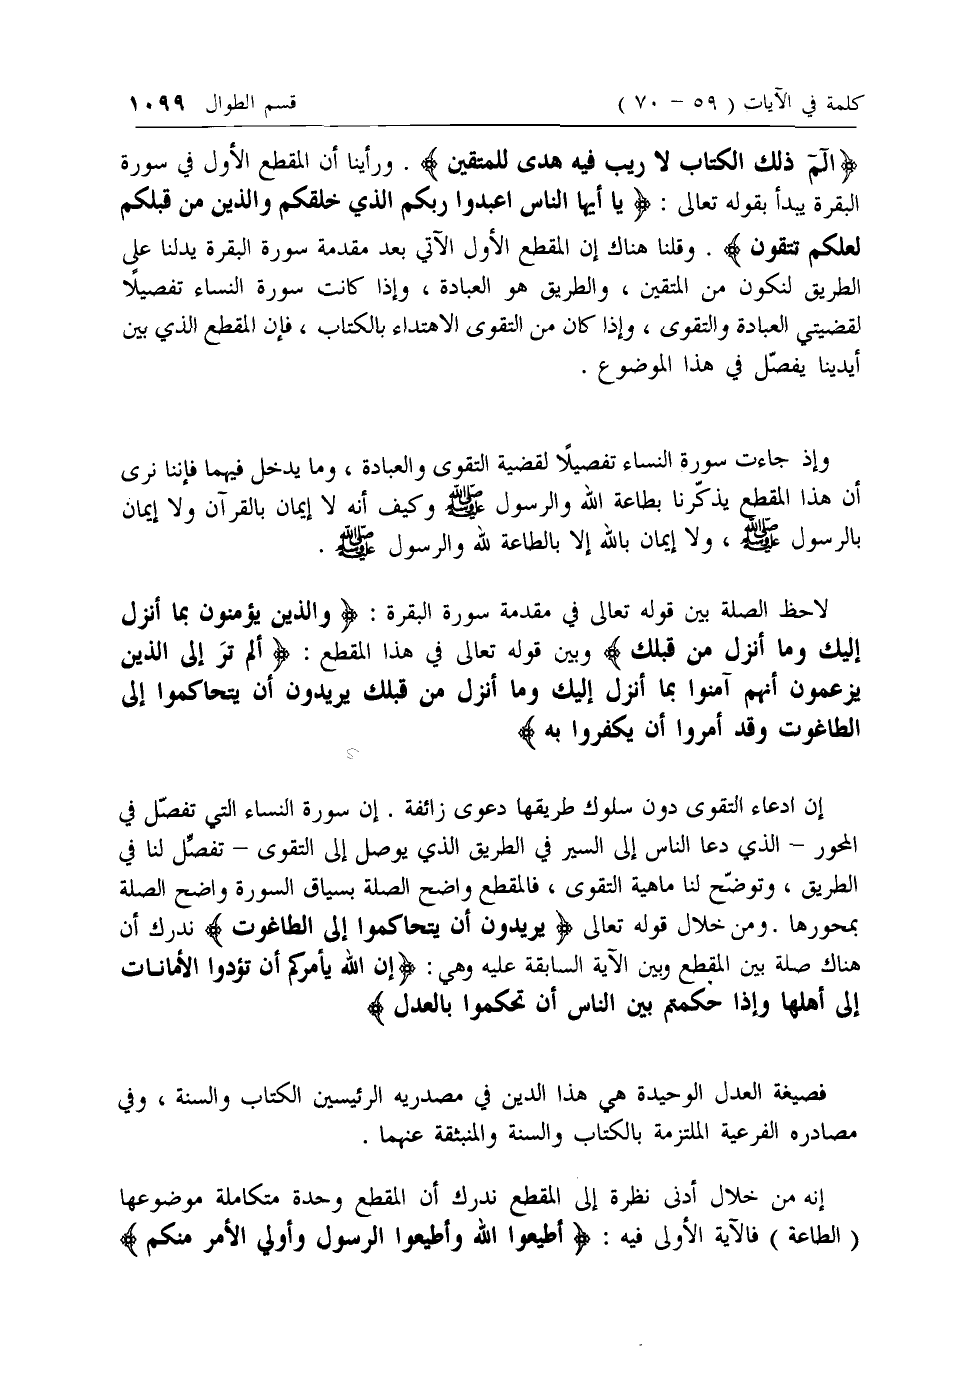 كلمة في الآيات ( ٥٩ - ٧٠ ) قسم الطوال ١٠٩٩
﴿ الٓمٓ ذلك الكتاب لا ريب فيه هدى للمتقين ﴾ . ورأينا أن المقطع الأول في سورة
البقرة يبدأ بقوله تعالى : ﴿ يا أيها الناس اعبدوا ربكم الذي خلقكم والذين من قبلكم
لعلكم تتقون ﴾ . وقلنا هناك إن المقطع الأول الآتي بعد مقدمة سورة البقرة يدلنا على
الطريق لنكون من المتقين ، والطريق هو العبادة ، وإذا كانت سورة النساء تفصيلًا
لقضيتي العبادة والتقوى ، وإذا كان من التقوى الاهتداء بالكتاب ، فإن المقطع الذي بين
أيدينا يفصّل في هذا الموضوع .
وإذ جاءت سورة النساء تفصيلًا لقضية التقوى والعبادة ، وما يدخل فيهما فإننا نرى
أن هذا المقطع يذكّرنا بطاعة الله والرسول ﷺ وكيف أنه لا إيمان بالقرآن ولا إيمان
بالرسول ﷺ ، ولا إيمان بالله إلا بالطاعة لله والرسول ﷺ .
لاحظ الصلة بين قوله تعالى في مقدمة سورة البقرة : ﴿ والذين يؤمنون بما أنزل
إليك وما أنزل من قبلك ﴾ وبين قوله تعالى في هذا المقطع : ﴿ ألم ترَ إلى الذين
يزعمون أنهم آمنوا بما أنزل إليك وما أنزل من قبلك يريدون أن يتحاكموا إلى
الطاغوت وقد أمروا أن يكفروا به ﴾
إن ادعاء التقوى دون سلوك طريقها دعوى زائفة . إن سورة النساء التي تفصّل في
المحور – الذي دعا الناس إلى السير في الطريق الذي يوصل إلى التقوى – تفصِّل لنا في
الطريق ، وتوضّح لنا ماهية التقوى ، فالمقطع واضح الصلة بسياق السورة واضح الصلة
بمحورها . ومن خلال قوله تعالى ﴿ يريدون أن يتحاكموا إلى الطاغوت ﴾ ندرك أن
هناك صلة بين المقطع وبين الآية السابقة عليه وهي : ﴿ إن الله يأمركم أن تؤدوا الأمانات
إلى أهلها وإذا حكمتم بين الناس أن تحكموا بالعدل ﴾
فصيغة العدل الوحيدة هي هذا الدين في مصدريه الرئيسين الكتاب والسنة ، وفي
مصادره الفرعية الملتزمة بالكتاب والسنة والمنبثقة عنهما .
إنه من خلال أدنى نظرة إلى المقطع ندرك أن المقطع وحدة متكاملة موضوعها
( الطاعة ) فالآية الأولى فيه : ﴿ أطيعوا الله وأطيعوا الرسول وأولي الأمر منكم ﴾